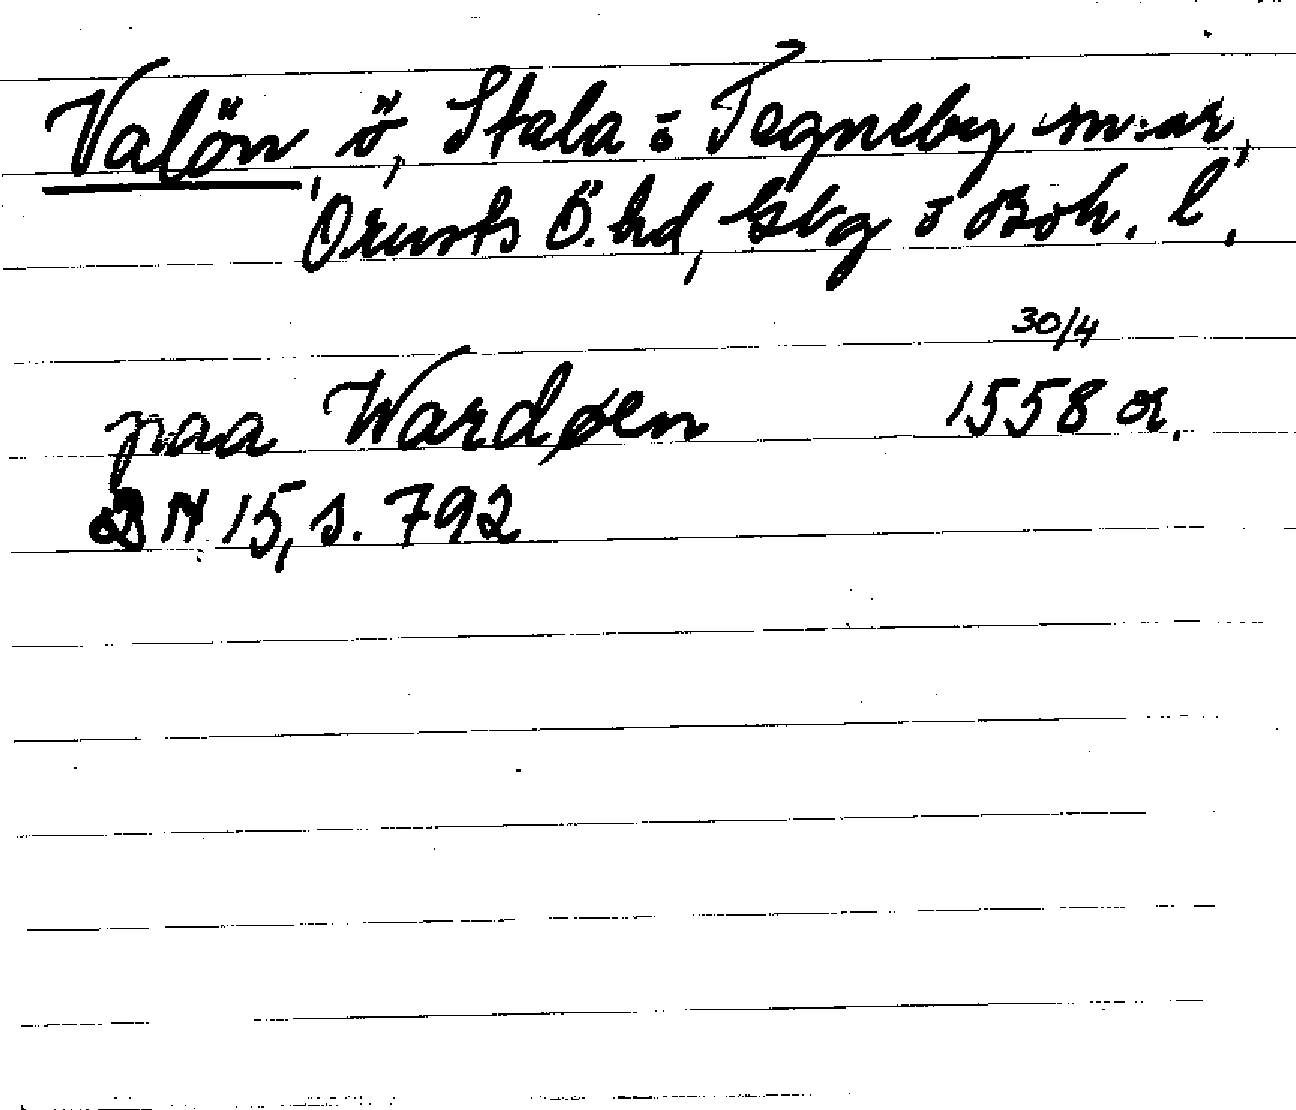 Valön ö, Stala o Tegneby sn:ar,
Orusts Ö. hd, Gbg o Boh. l.
30/4
paa Wardøen 1558 or.
DN 15, s. 792